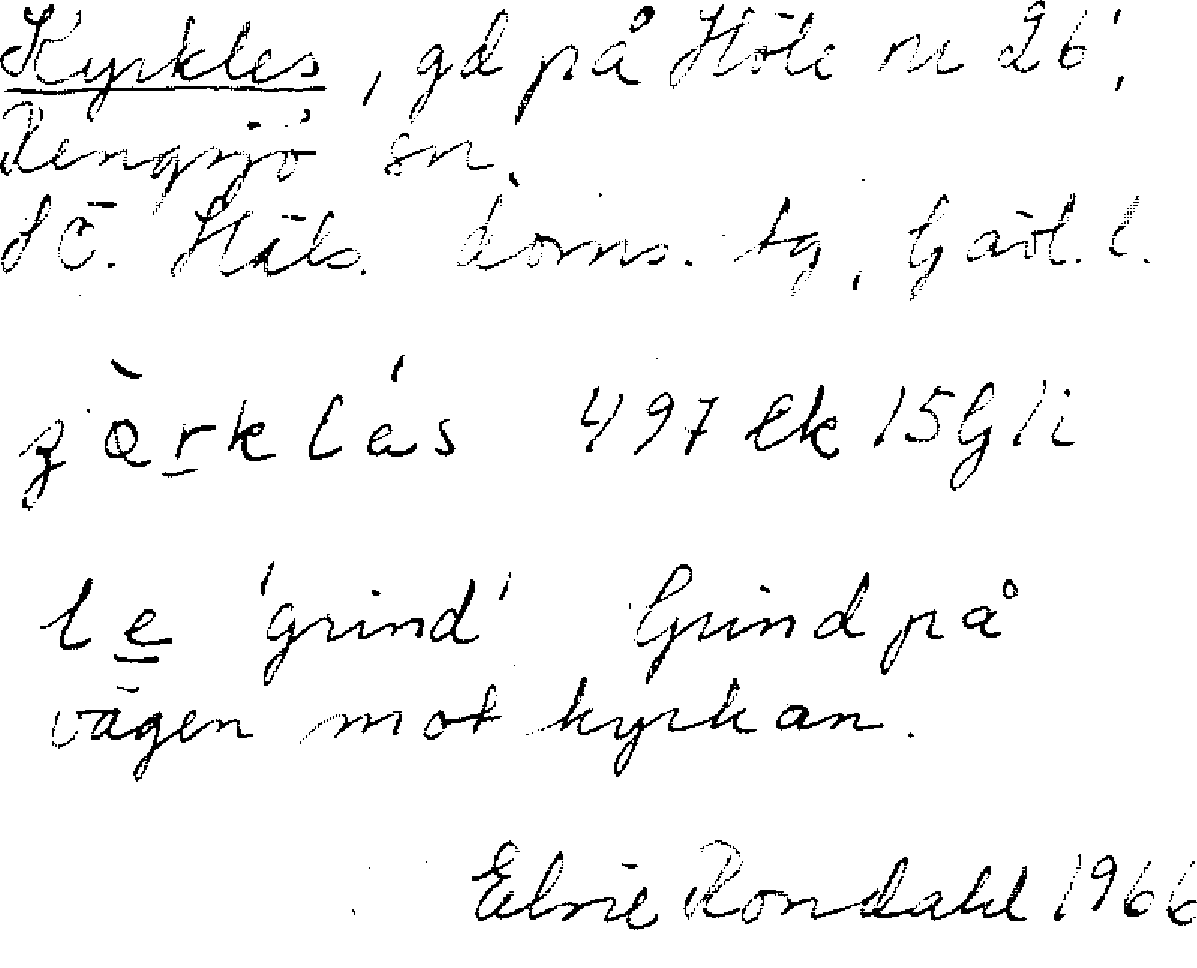 Kyrkles, gd på Höle nr 26,
Rengsjö sn,
SÖ. Häls. doms. tg, Gävl. l.
497 ek 15G 1i
le 'grind' Grind på
vägen mot kyrkan.
Elvie Rondahl 1966